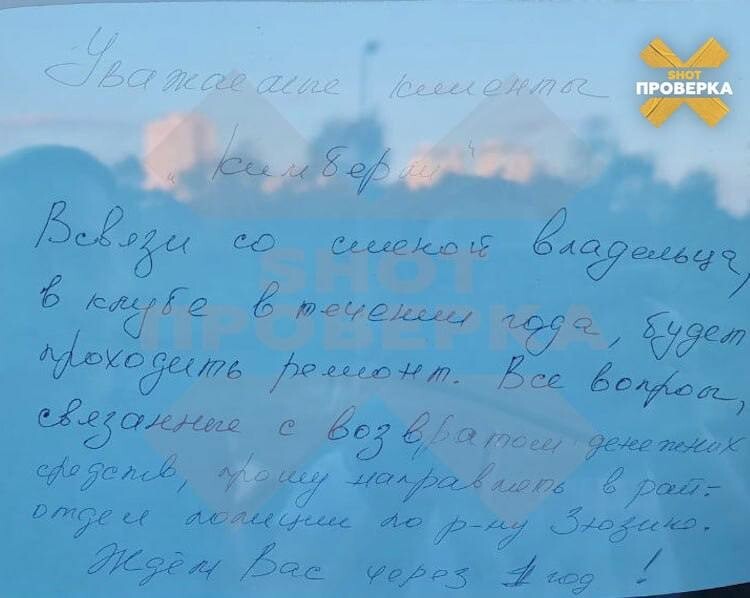 SHOT
ПРОВЕРКА
Уважаемые клиенты
"Кимберли"
Всвязи со сменой владельца,
в клубе в течении года, будет
проходить ремонт. Все вопросы,
связанные с возвратом денежних
средств, прошу направлять в рай-
отдел полиции по р-ну Зюзино.
Ждём Вас через 1 год !
SHOT
ПРОВЕРКА